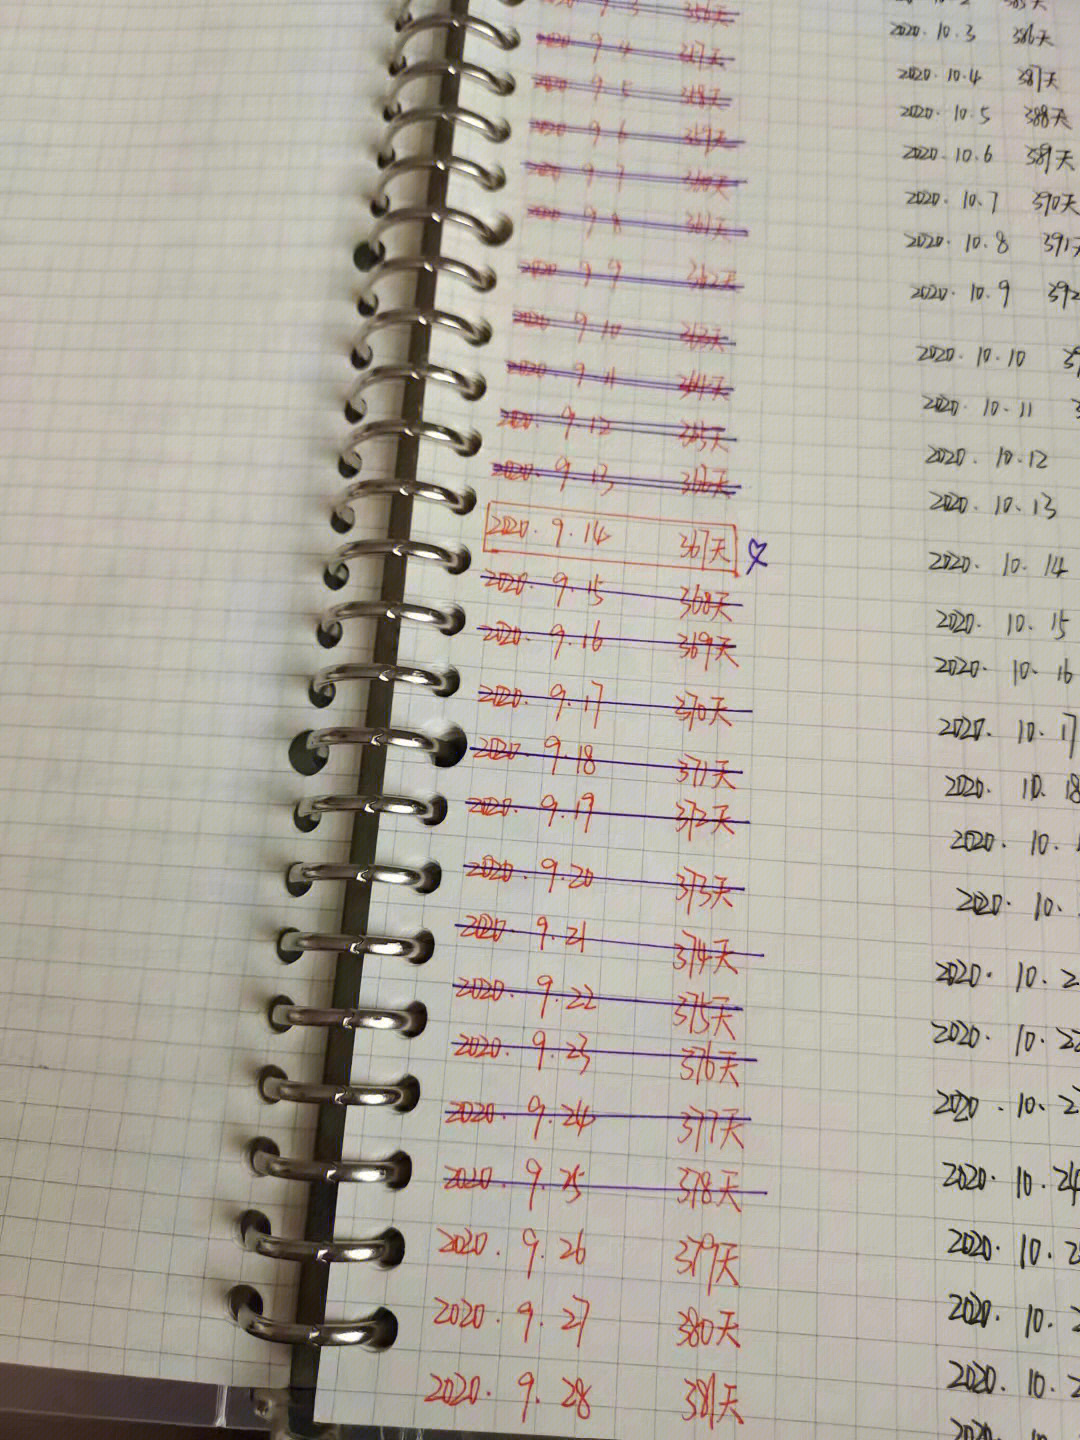 2020 9 3 356天
2020 9 4 357天
2020 9 5 358天
2020 9 6 359天
2020 9 7 360天
2020 9 8 361天
2020 9 9 362天
2020 9 10 363天
2020. 9 11 364天
2020. 9.12 365天
2020. 9.13 366天
2020. 9.14 367天
2020. 9.15 368天
2020. 9.16 369天
2020. 9.17 370天
2020. 9.18 371天
2020. 9.19 372天
2020. 9.20 373天
2020. 9.21 374天
2020. 9.22 375天
2020. 9.23 376天
2020. 9.24 377天
2020. 9.25 378天
2020. 9.26 379天
2020. 9.27 380天
2020. 9.28 381天
2020. 10.3 386天
2020. 10.4 387天
2020. 10.5 388天
2020. 10.6 389天
2020. 10.7 390天
2020. 10.8 391天
2020. 10.9 392
2020. 10.10
2020. 10.11
2020. 10.12
2020. 10.13
2020. 10.14
2020. 10.15
2020. 10.16
2020. 10.17
2020. 10.18
2020. 10.
2020. 10.
2020. 10.2
2020. 10.22
2020. 10.2
2020. 10.24
2020. 10.2
2020. 10.2
2020. 10.2
2020. 10